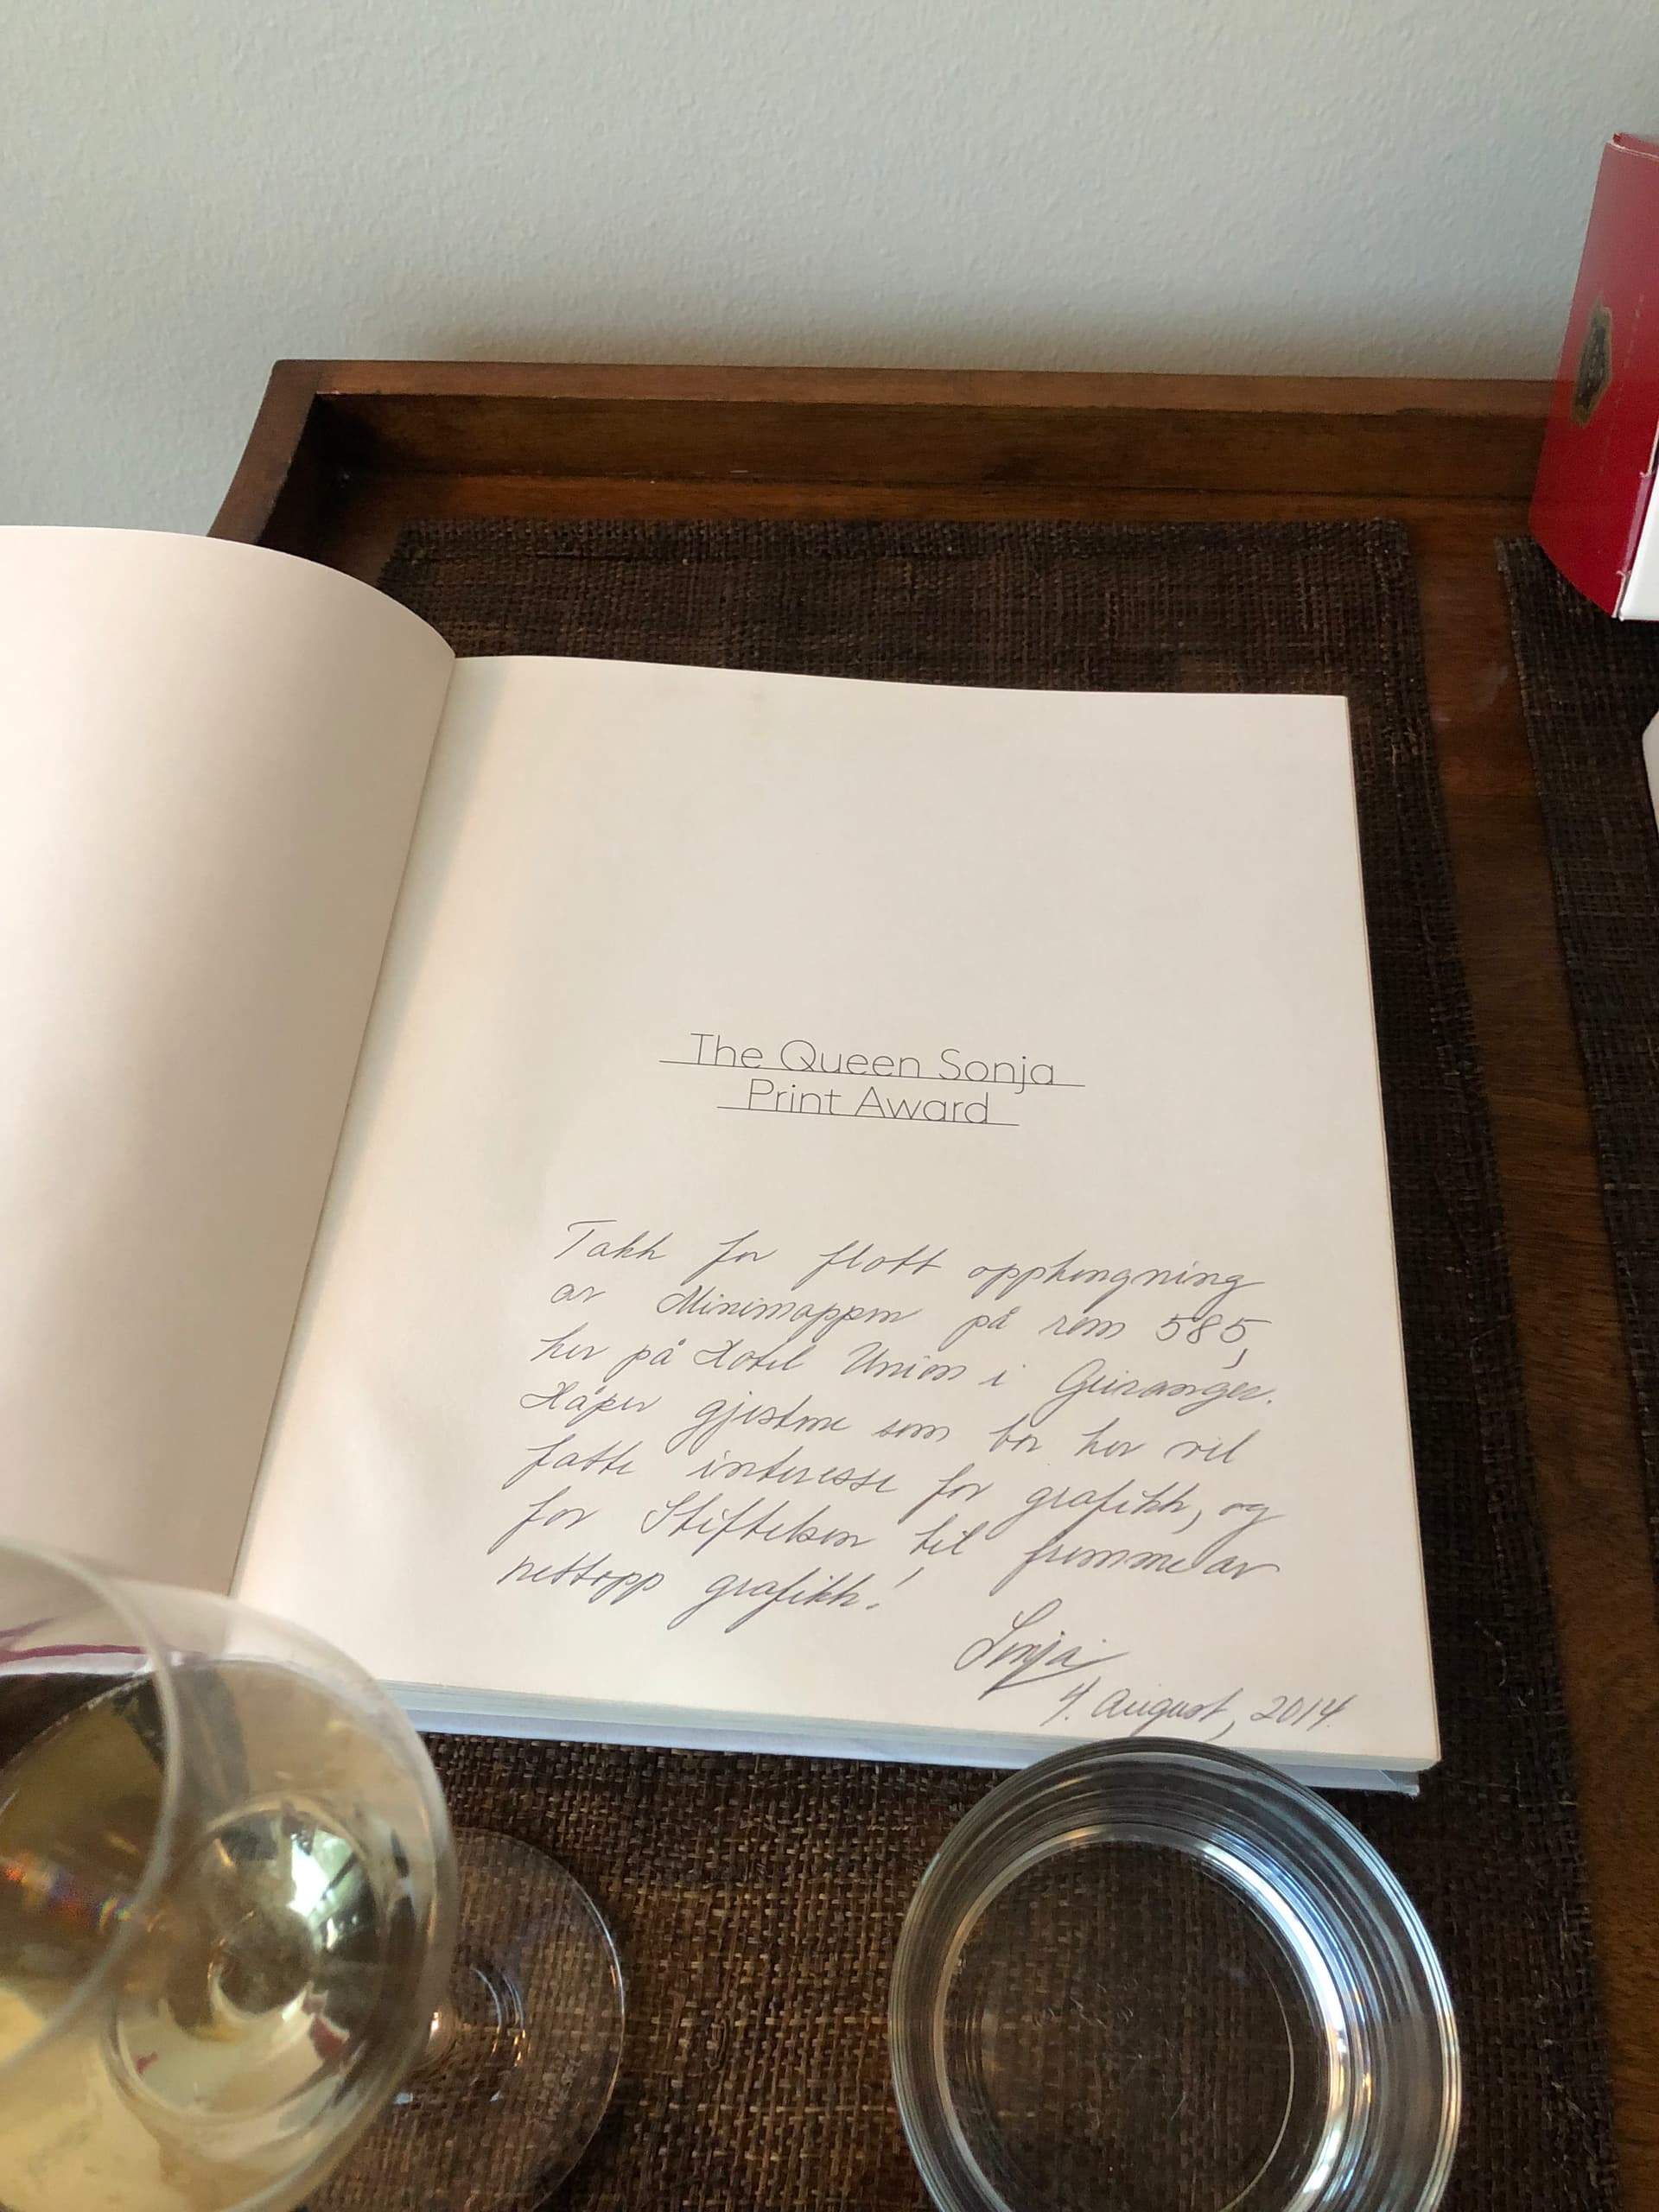 The Queen Sonja
Print Award
Takk for flott opphengning
av Minimappen på rom 585,
her på Hotel Union i Geiranger.
Håper gjestene som bor her vil
fatte interesse for grafikk, og
for Stiftelsen til fremme av
nettopp grafikk!
Sonja
4. August, 2014.